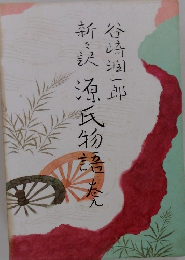 谷崎潤一郎
新々訳
源氏物語 巻一